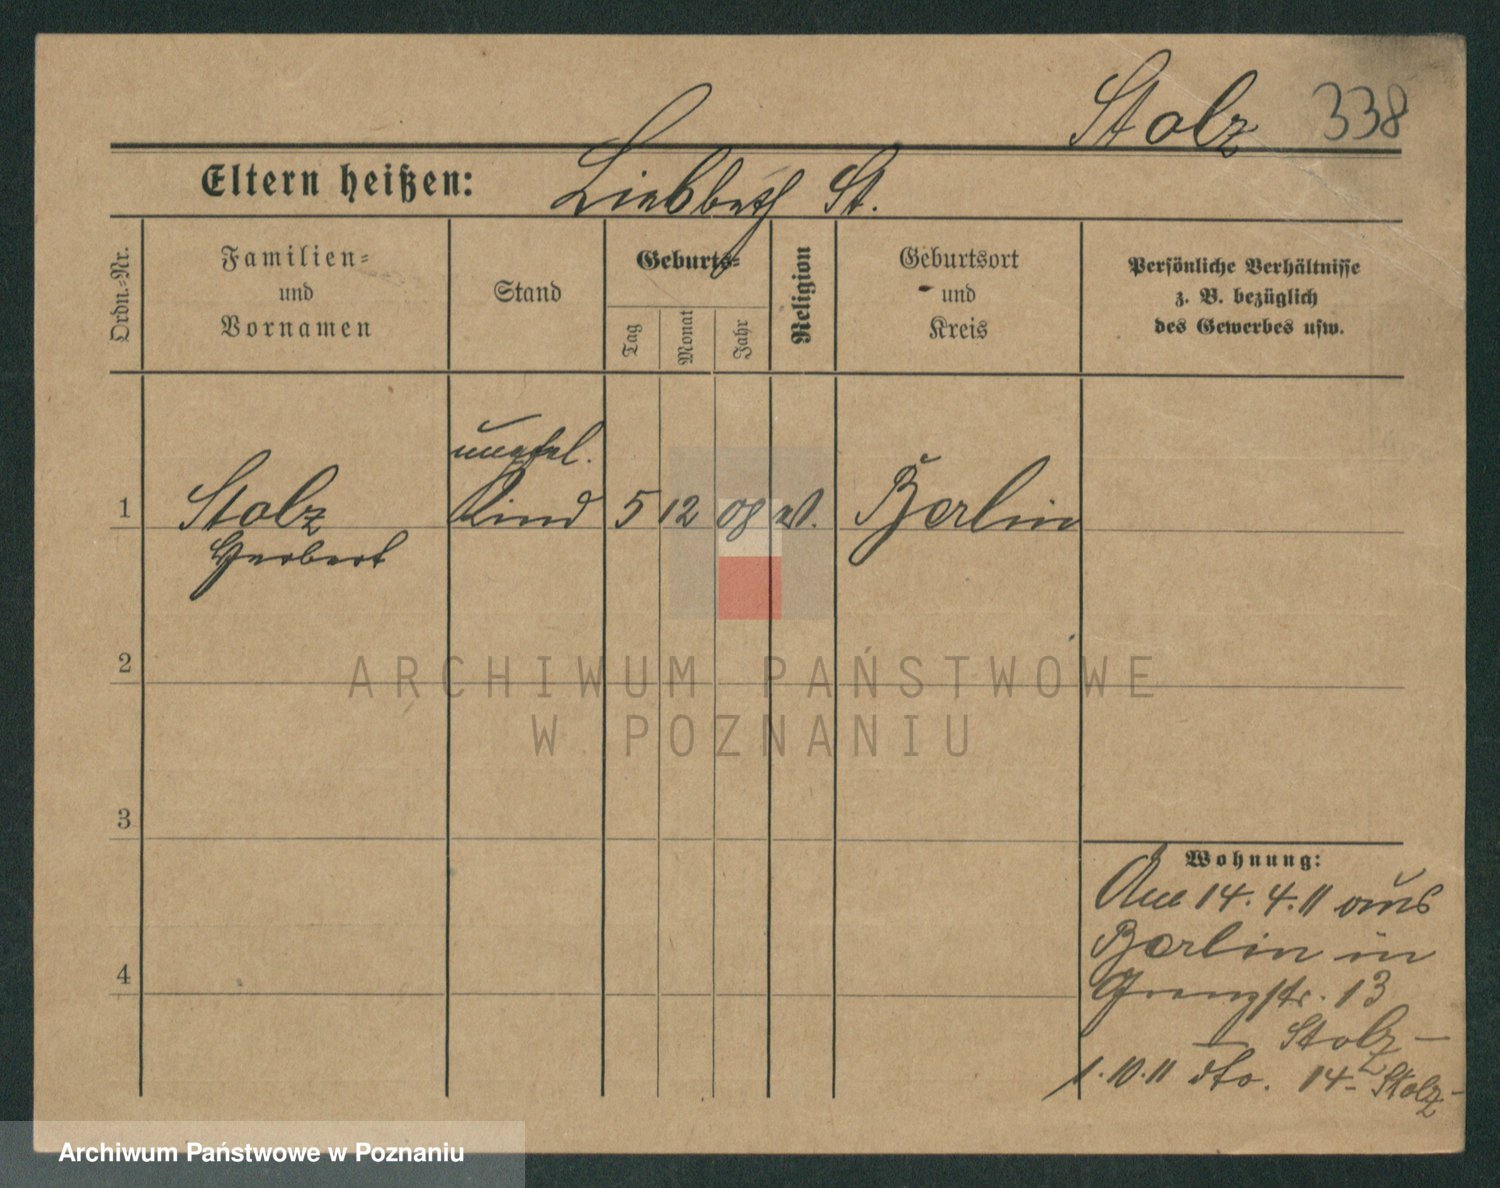 Stolz 338
Eltern heißen: Liesbeth St.
Ordn.=Nr.
Familien=
und
Vornamen
Stand
Geburts=
Tag
Monat
Jahr
Religion
Geburtsort
und
Kreis
Persönliche Verhältnisse
z. B. bezüglich
des Gewerbes usw.
unehel.
1 Stolz Kind 5 12 08 Berlin
Herbert
2
3
4
Wohnung:
Am 14.4.11 aus
Berlin in
Grenzstr. 13
— Stolz —
1.10.11 dto. 14 - Stolz -
ARCHIWUM PAŃSTWOWE
W POZNANIU
Archiwum Państwowe w Poznaniu